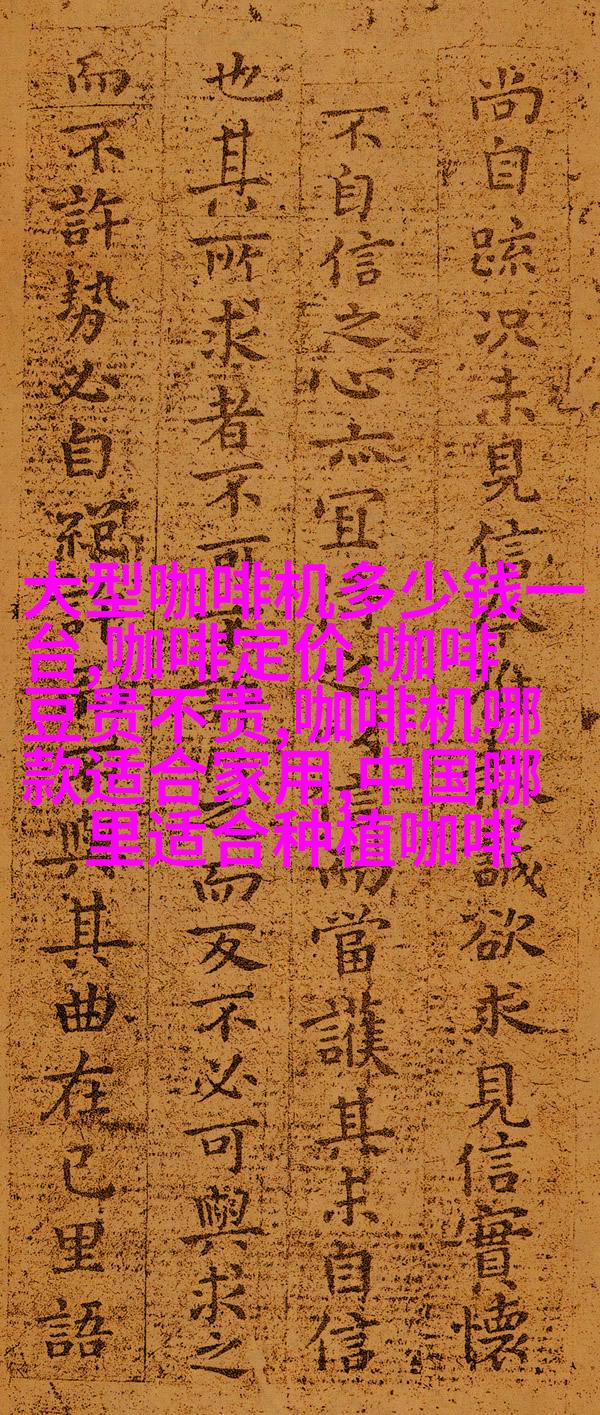 大型咖啡机多少钱一
台,咖啡定价,咖啡
豆贵不贵,咖啡机哪
款适合家用,中国哪
里适合种植咖啡
尚自疏況未見信誠欲求見信實懷
不自信之心亦宜信當護其未自信
也其所求者不可而反不必可與求之
而不許勢必自絕許與其曲在已里語